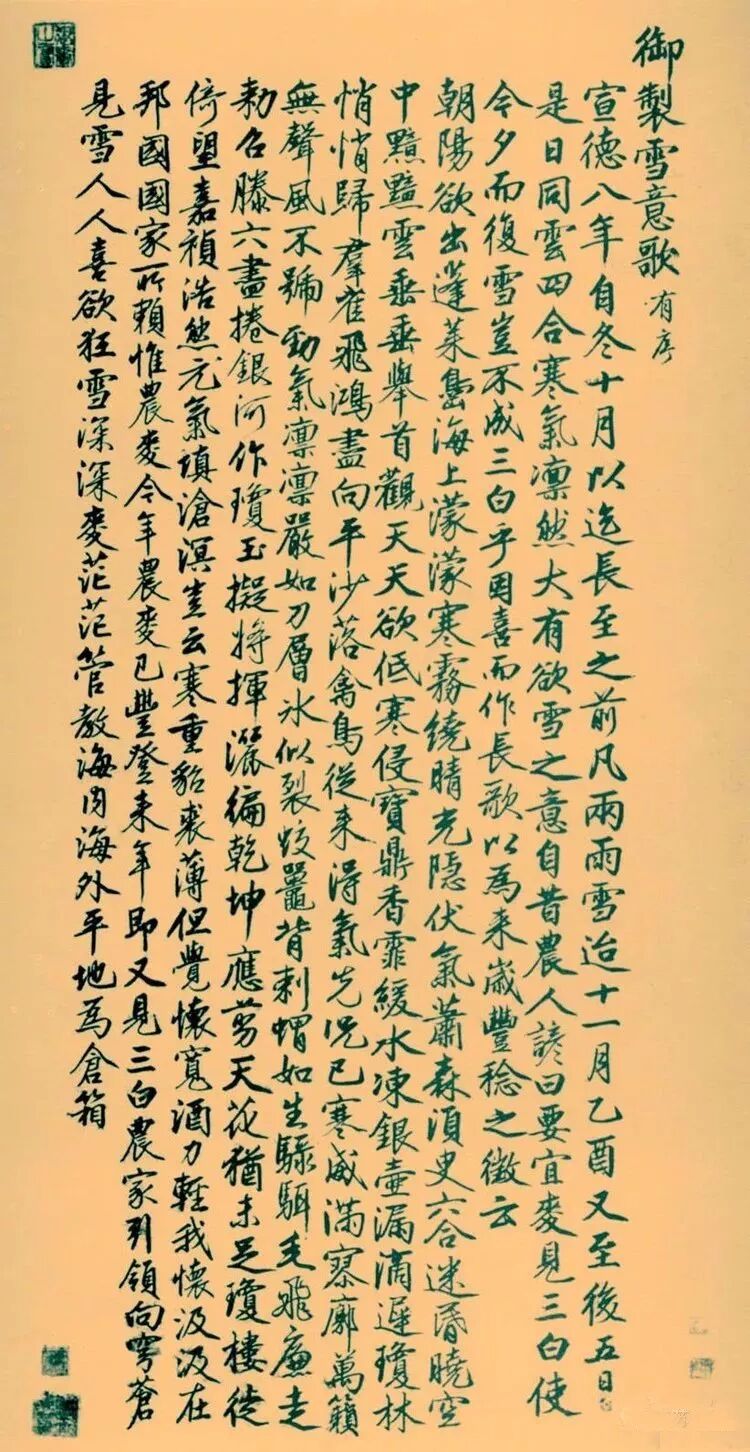 御製雪意歌 有序
宣德八年自冬十月以迄長至之前凡兩雨雪迨十一月乙酉又至後五日也
是日同雲四合寒氣凛然大有欲雪之意自昔農人諺曰要宜麥見三白使
今夕而復雪豈不成三白乎因喜而作長歌以為来嵗豐稔之徵云
朝陽欲出蓬莱島海上濛濛寒霧繞晴光隱伏氣蕭森湏臾六合迷昏曉空
中黯黯雲垂垂舉首觀天天欲低寒侵寶鼎香霏緩水凍銀壷漏滴遲瓊林
悄悄歸羣雀飛鴻盡向平沙落禽鳥從来得氣先况已寒威滿寥廓萬籟
無聲風不號勁氣凛凛嚴如刀層冰似裂蛟鼉背剌蝟如生騄駬毛飛廉走
勅召滕六盡捲銀河作瓊玉擬將揮灑徧乾坤應剪天花猶未足瓊樓徙
倚望嘉禎浩然元氣填滄溟豈云寒重貂裘薄但覺懷寬酒力輕我懷汲汲在
邦國國家所賴惟農麥今年農麥已豐登来年即又見三白農家引領向穹蒼
見雪人人喜欲狂雪深深麥茫茫管教海内海外平地為倉箱